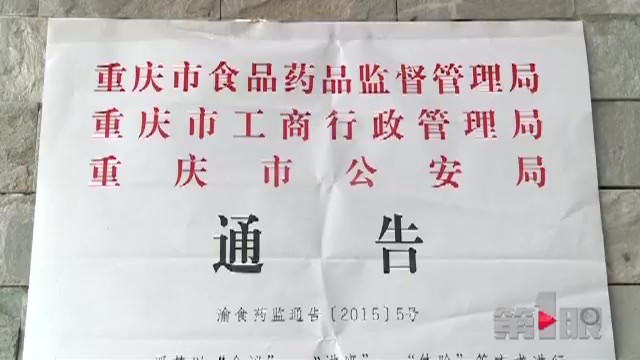 重庆市食品药品监督管理局
重庆市工商行政管理局
重庆市公安局
通告
渝食药监通告〔2015〕5号
第1眼